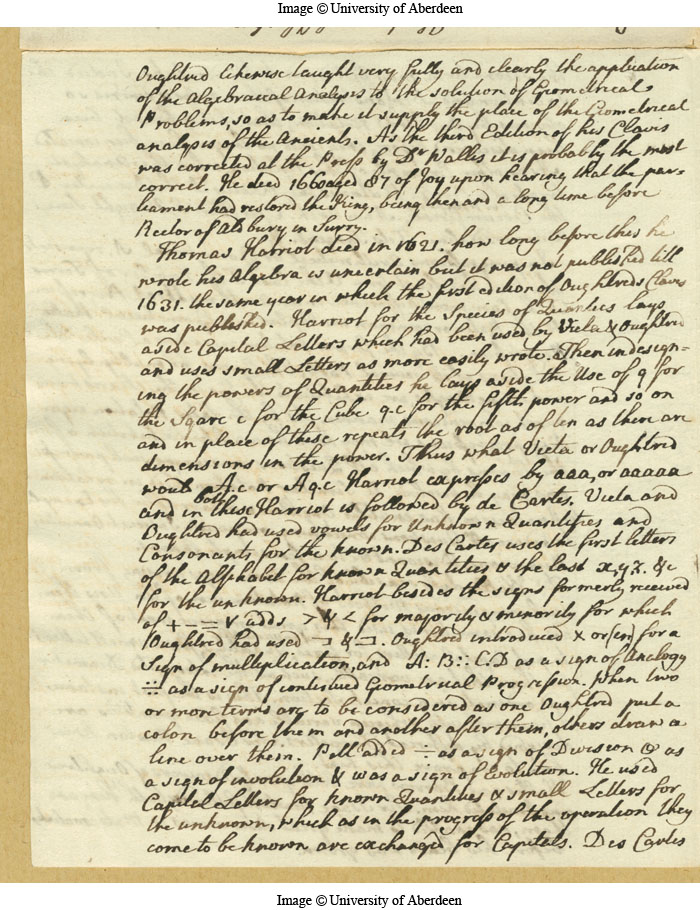 Image © University of Aberdeen
Oughtred likewise taught very fully and clearly the application
of the Algebraical Analysis to the solution of Geometrical
Problems, so as to make it supply the place of the Geometrical
analysis of the Ancients. As the third Edition of his Clavis
was corrected at the Press by Dr Wallis it is probably the most
correct. He died 1660 aged 87 of Joy upon hearing that the par-
liament had restored the King, being then and a long time before
Rector of Alsbury in Surry.
Thomas Harriot died in 1621. how long before this he
wrote his Algebra is uncertain but it was not published till
1631. the same year in which the first edition of Oughtreds Clavis
was published. Harriot for the Species of Quantities lays
aside Capital Letters which had been used by Vieta & Oughtred
and uses small Letters as more easily wrote. Then in design=
ing the powers of Quantities he lays aside the Use of q for
the Sqare c for the Cube qc for the fifth power and so on
and in place of these repeats the root as often as there are
dimensions in the power. Thus what Vieta or Oughtred
would Ac or Aqc Harriot expresses by aaa, or aaaaa
and in both these Harriot is followed by de Cartes. Vieta and
Oughtred had used vowels for Unknown Quantities and
Consonants for the known. Des Cartes uses the first letters
of the Alphabet for known Quantities & the last x, y, z, &c
for the unknown. Harriot besides the signs formerly received
of + - = √ adds > & < for majority & minority for which
Oughtred had used ⊐ & ⊐. Oughtred introduced × or (in) for a
Sign of multiplication, and A : B :: C. D as a sign of Analogy
∺ as a sign of continued Geometrical Progression. When two
or more terms are to be considered as one Oughtred put a
colon before them and another after them, others draw a
line over them. Pell added ÷ as a sign of Division @ as
a sign of involution & w as a sign of Evolution. He used
Capitel Letters for known Quantities & small Letters for
the unknown, which as in the progress of the operation they
come to be known are exchanged for Capitals. Des Cartes
Image © University of Aberdeen